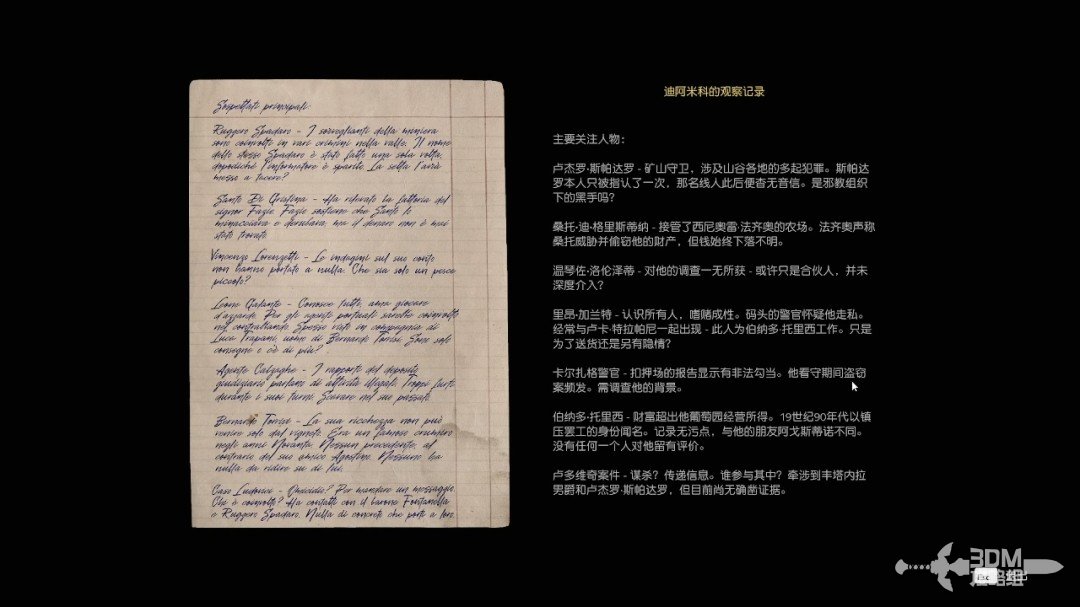 Sospettati principali:
Ruggero Spadaro - I sorveglianti della miniera
sono coinvolti in vari crimini nella valle. Il nome
dello stesso Spadaro è stato fatto una sola volta,
dopodiché l'informatore è sparito. La setta l'avrà
messo a tacere?
Santo Di Cristina - Ha rilevato la fattoria del
signor Fazio. Fazio sostiene che Santo lo
minacciava e derubava, ma il denaro non è mai
stato trovato.
Vincenzo Lorenzetti - Le indagini sul suo conto
non hanno portato a nulla. Che sia solo un pesce
piccolo?
Leone Galante - Conosce tutti, ama giocare
d'azzardo. Per gli agenti portuali sarebbe coinvolto
nel contrabbando. Spesso visto in compagnia di
Luca Trapani, uomo di Bernardo Torrisi. Sono solo
consegne o c'è di più?
Agente Calzaghe - I rapporti del deposito
giudiziario parlano di attività illegali. Troppi furti
durante i suoi turni. Scavare nel suo passato.
Bernardo Torrisi - La sua ricchezza non può
venire solo dal vigneto. Era un famoso crumiro
negli anni Novanta. Nessun precedente, al
contrario del suo amico Agostino. Nessuno ha
nulla da ridire su di lui.
Caso Ludovico - Omicidio? Per mandare un messaggio.
Chi è coinvolto? Ha contatti con il barone Fontanella
e Ruggero Spadaro. Nulla di concreto che porti a loro.
迪阿米科的观察记录
主要关注人物：
卢杰罗·斯帕达罗 - 矿山守卫，涉及山谷各地的多起犯罪。斯帕达
罗本人只被指认了一次，那名线人此后便杳无音信。是邪教组织
下的黑手吗？
桑托·迪·格里斯蒂纳 - 接管了西尼奥雷·法齐奥的农场。法齐奥声称
桑托威胁并偷窃他的财产，但钱始终下落不明。
温琴佐·洛伦泽蒂 - 对他的调查一无所获 - 或许只是合伙人，并未
深度介入？
里昂·加兰特 - 认识所有人，嗜赌成性。码头的警官怀疑他走私。
经常与卢卡·特拉帕尼一起出现 - 此人为伯纳多·托里西工作。只是
为了送货还是另有隐情？
卡尔扎格警官 - 扣押场的报告显示有非法勾当。他看守期间盗窃
案频发。需调查他的背景。
伯纳多·托里西 - 财富超出他葡萄园经营所得。19世纪90年代以镇
压罢工的身份闻名。记录无污点，与他的朋友阿戈斯蒂诺不同。
没有任何一个人对他留有评价。
卢多维奇案件 - 谋杀？传递信息。谁参与其中？牵涉到丰塔内拉
男爵和卢杰罗·斯帕达罗，但目前尚无确凿证据。
3DM